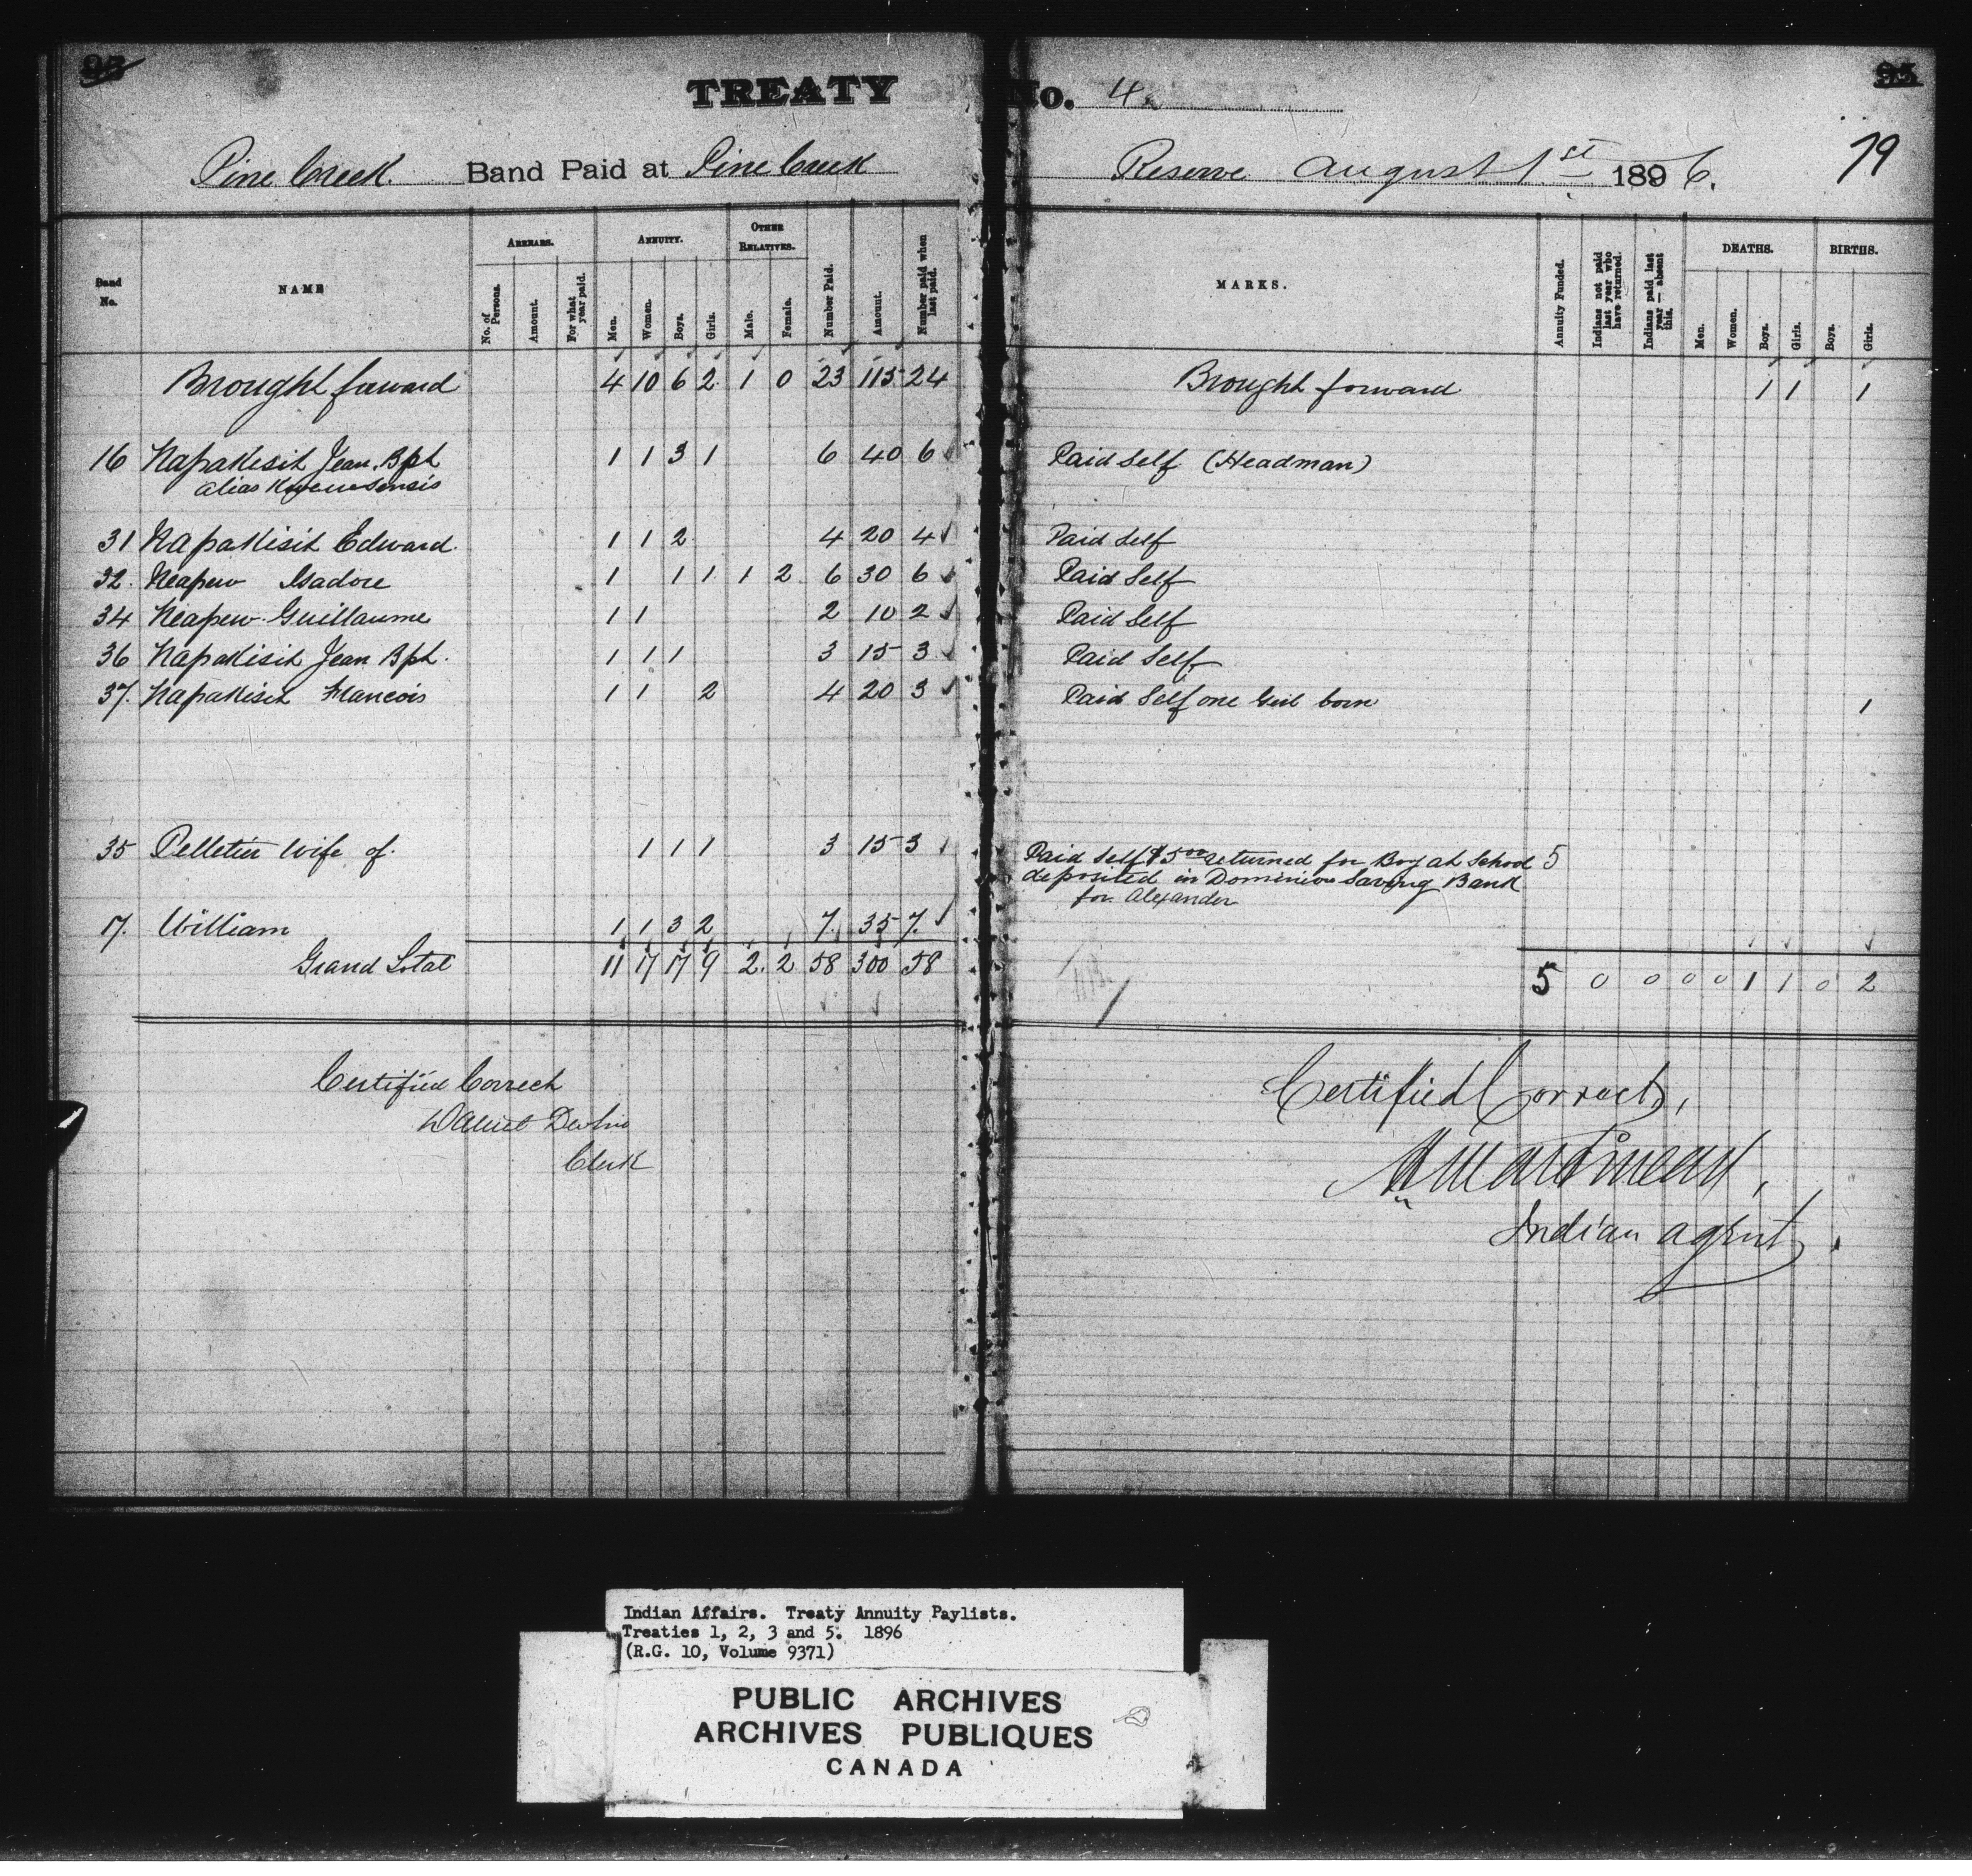 95 95
TREATY No. 4.
79
Pine Creek Band Paid at Pine Creek Reserve August 1st 1896.
Band No. NAME ARREARS. No. of Persons. Amount. For what year paid. ANNUITY. Men. Women. Boys. Girls. OTHER RELATIVES. Male. Female. Number Paid. Amount. Number paid when last paid. MARKS. Annuity Funded. Indians not paid last year who have returned. Indians paid last year — absent this. DEATHS. Men. Women. Boys. Girls. BIRTHS. Boys. Girls.
Brought forward 4 10 6 2 1 0 23 115 24 Brought forward 1 1 1
16 Napakisit Jean Bpt 1 1 3 1 6 40 6 Paid Self (Headman)
alias
31 Napakisit Edward. 1 1 2 4 20 4 Paid Self
32. Neapew Isadore 1 1 1 1 2 6 30 6 Paid Self
34 Neapew Guillaume 1 1 2 10 2 Paid Self
36 Napakisit Jean Bpt. 1 1 1 3 15 3 Paid Self
37. Napakisit Francois 1 1 2 4 20 3 Paid Self one Girl born 1
35 Pelletier wife of. 1 1 1 3 15 3 Paid Self $5.00 returned for Boy at School 5
deposited in Dominion Saving Bank
for Alexander
17. William 1 1 3 2 7. 35 7.
Grand Total 11 17 17 9 2. 2 58 300 58 5 0 0 0 0 1 1 0 2
Certified Correct
Clerk
Certified Correct,
Indian agent.
Indian Affairs. Treaty Annuity Paylists.
Treaties 1, 2, 3 and 5. 1896
(R.G. 10, Volume 9371)
PUBLIC ARCHIVES
ARCHIVES PUBLIQUES
CANADA